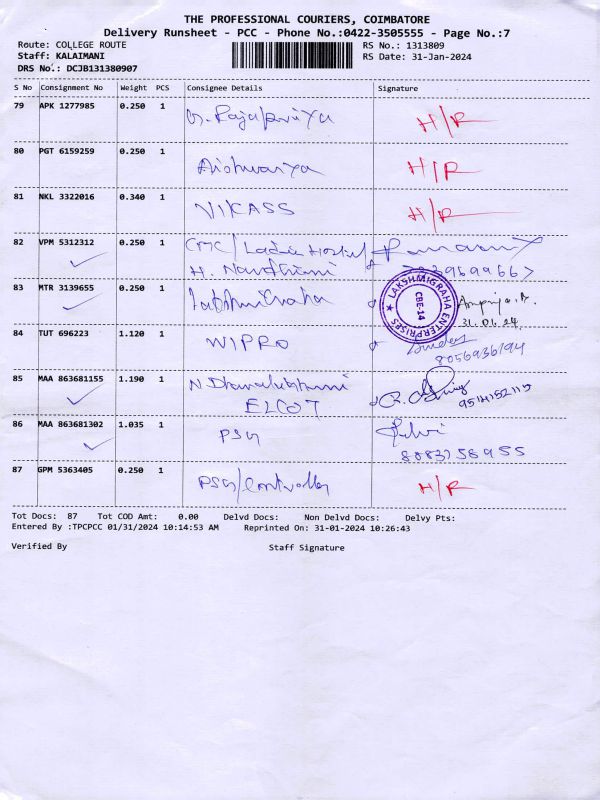 THE PROFESSIONAL COURIERS, COIMBATORE
Delivery Runsheet - PCC - Phone No.:0422-3505555 - Page No.:7
Route: COLLEGE ROUTE RS No.: 1313809
Staff: KALAIMANI RS Date: 31-Jan-2024
DRS No.: DCJB131380907
S No Consignment No Weight PCS Consignee Details Signature
79 APK 1277985 0.250 1 H/R
80 PGT 6159259 0.250 1 Aishwarya H/R
81 NKL 3322016 0.340 1 VIKASS H/R
82 VPM 5312312 0.250 1 CMC/Ladies Hostel
83 MTR 3139655 0.250 1
LAKSHMIGRAHA ENTERPRISES
CBE-14
31.01.24
84 TUT 696223 1.120 1 WIPRO
8056936194
85 MAA 863681155 1.190 1
ELCOT
86 MAA 863681302 1.035 1 PSG Selvi
87 GPM 5363405 0.250 1 PSG/Controller H/R
Tot Docs: 87 Tot COD Amt: 0.00 Delvd Docs: Non Delvd Docs: Delvy Pts:
Entered By :TPCPCC 01/31/2024 10:14:53 AM Reprinted On: 31-01-2024 10:26:43
Verified By Staff Signature